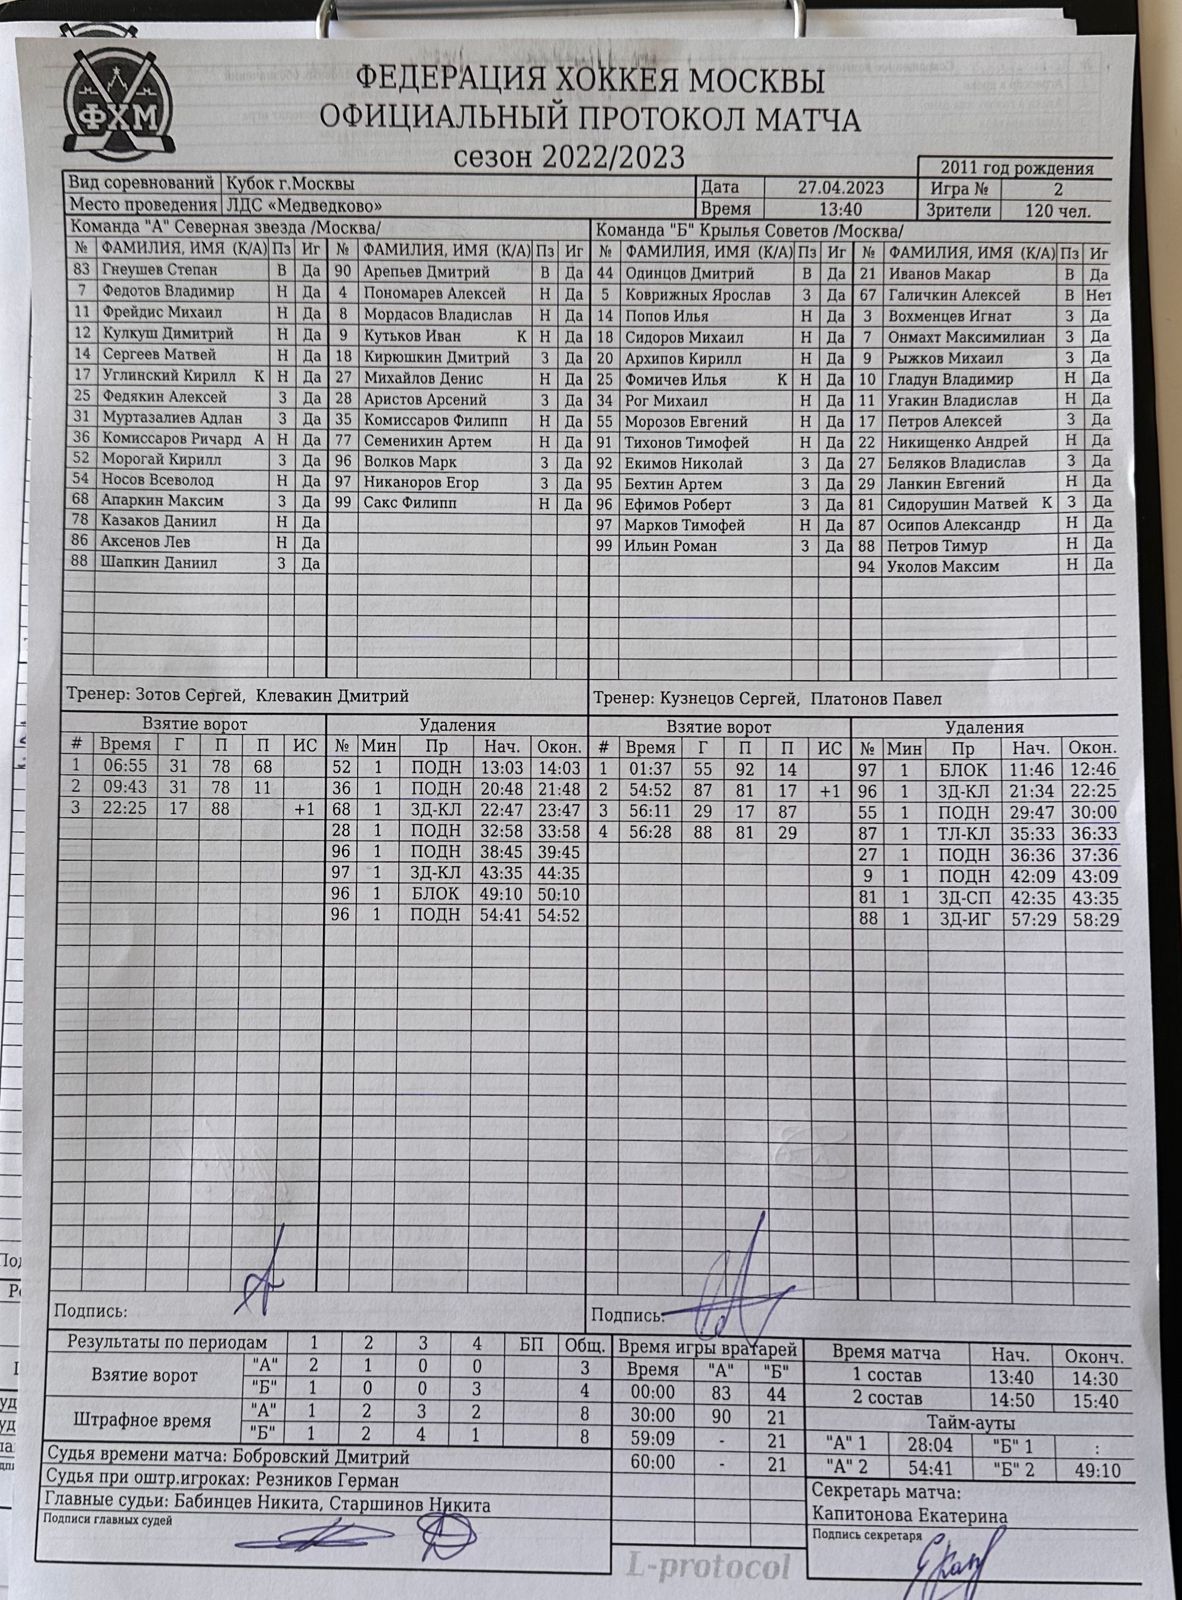 ФХМ
ФЕДЕРАЦИЯ ХОККЕЯ МОСКВЫ
ОФИЦИАЛЬНЫЙ ПРОТОКОЛ МАТЧА
сезон 2022/2023
2011 год рождения
Вид соревнований Кубок г.Москвы Дата 27.04.2023 Игра № 2
Место проведения ЛДС «Медведково» Время 13:40 Зрители 120 чел.
Команда "А" Северная звезда /Москва/ Команда "Б" Крылья Советов /Москва/
№ ФАМИЛИЯ, ИМЯ (К/А) Пз Иг № ФАМИЛИЯ, ИМЯ (К/А) Пз Иг № ФАМИЛИЯ, ИМЯ (К/А) Пз Иг № ФАМИЛИЯ, ИМЯ (К/А) Пз Иг
83 Гнеушев Степан В Да 90 Арепьев Дмитрий В Да 44 Одинцов Дмитрий В Да 21 Иванов Макар В Да
7 Федотов Владимир Н Да 4 Пономарев Алексей Н Да 5 Коврижных Ярослав З Да 67 Галичкин Алексей В Нет
11 Фрейдис Михаил Н Да 8 Мордасов Владислав Н Да 14 Попов Илья Н Да 3 Вохменцев Игнат З Да
12 Кулкуш Димитрий Н Да 9 Кутьков Иван К Н Да 18 Сидоров Михаил Н Да 7 Онмахт Максимилиан З Да
14 Сергеев Матвей Н Да 18 Кирюшкин Дмитрий З Да 20 Архипов Кирилл Н Да 9 Рыжков Михаил З Да
17 Углинский Кирилл К Н Да 27 Михайлов Денис Н Да 25 Фомичев Илья К Н Да 10 Гладун Владимир Н Да
25 Федякин Алексей З Да 28 Аристов Арсений З Да 34 Рог Михаил Н Да 11 Угакин Владислав Н Да
31 Муртазалиев Адлан З Да 35 Комиссаров Филипп Н Да 55 Морозов Евгений Н Да 17 Петров Алексей З Да
36 Комиссаров Ричард А Н Да 77 Семенихин Артем Н Да 91 Тихонов Тимофей Н Да 22 Никищенко Андрей Н Да
52 Морогай Кирилл З Да 96 Волков Марк З Да 92 Екимов Николай З Да 27 Беляков Владислав З Да
54 Носов Всеволод Н Да 97 Никаноров Егор З Да 95 Бехтин Артем З Да 29 Ланкин Евгений Н Да
68 Апаркин Максим З Да 99 Сакс Филипп Н Да 96 Ефимов Роберт З Да 81 Сидорушин Матвей К З Да
78 Казаков Даниил Н Да 97 Марков Тимофей Н Да 87 Осипов Александр Н Да
86 Аксенов Лев Н Да 99 Ильин Роман З Да 88 Петров Тимур Н Да
88 Шапкин Даниил З Да 94 Уколов Максим Н Да
Тренер: Зотов Сергей, Клевакин Дмитрий Тренер: Кузнецов Сергей, Платонов Павел
Взятие ворот Удаления Взятие ворот Удаления
# Время Г П П ИС № Мин Пр Нач. Окон. # Время Г П П ИС № Мин Пр Нач. Окон.
1 06:55 31 78 68 52 1 ПОДН 13:03 14:03 1 01:37 55 92 14 97 1 БЛОК 11:46 12:46
2 09:43 31 78 11 36 1 ПОДН 20:48 21:48 2 54:52 87 81 17 +1 96 1 ЗД-КЛ 21:34 22:25
3 22:25 17 88 +1 68 1 ЗД-КЛ 22:47 23:47 3 56:11 29 17 87 55 1 ПОДН 29:47 30:00
28 1 ПОДН 32:58 33:58 4 56:28 88 81 29 87 1 ТЛ-КЛ 35:33 36:33
96 1 ПОДН 38:45 39:45 27 1 ПОДН 36:36 37:36
97 1 ЗД-КЛ 43:35 44:35 9 1 ПОДН 42:09 43:09
96 1 БЛОК 49:10 50:10 81 1 ЗД-СП 42:35 43:35
96 1 ПОДН 54:41 54:52 88 1 ЗД-ИГ 57:29 58:29
Подпись: Подпись:
Результаты по периодам 1 2 3 4 БП Общ. Время игры вратарей Время матча Нач. Оконч.
Взятие ворот "А" 2 1 0 0 3 Время "А" "Б" 1 состав 13:40 14:30
"Б" 1 0 0 3 4 00:00 83 44 2 состав 14:50 15:40
Штрафное время "А" 1 2 3 2 8 30:00 90 21 Тайм-ауты
"Б" 1 2 4 1 8 59:09 - 21 "А" 1 28:04 "Б" 1 :
Судья времени матча: Бобровский Дмитрий 60:00 - 21 "А" 2 54:41 "Б" 2 49:10
Судья при оштр.игроках: Резников Герман Секретарь матча:
Главные судьи: Бабинцев Никита, Старшинов Никита Капитонова Екатерина
Подписи главных судей Подпись секретаря
L-protocol